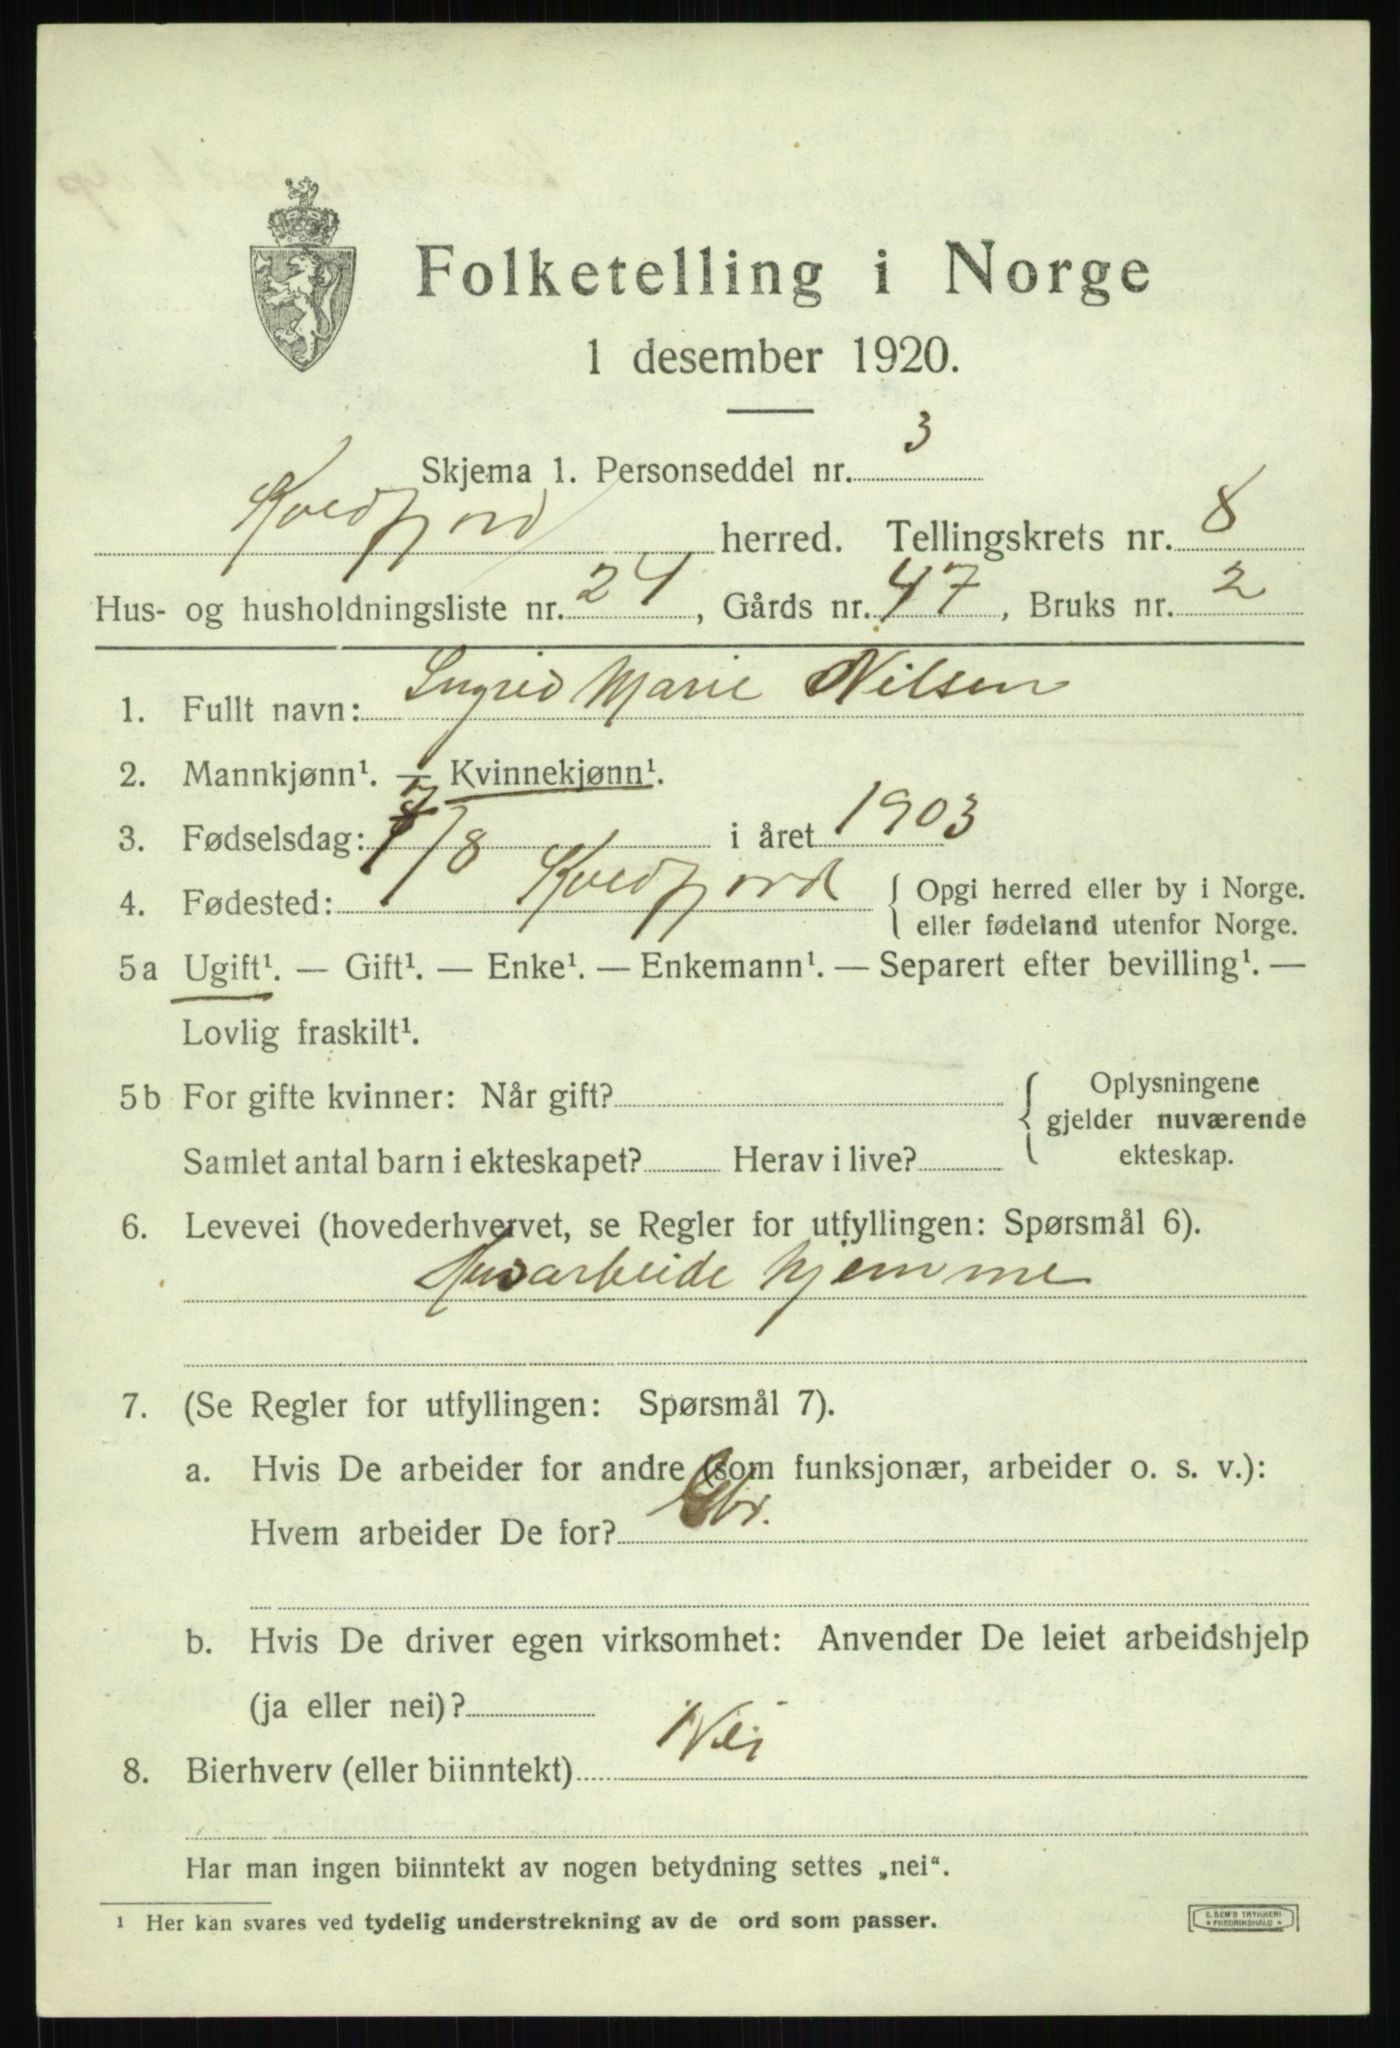 Folketelling i Norge
1 desember 1920.
Skjema 1. Personseddel nr. 3
Kvedfjord herred. Tellingskrets nr. 8
Hus- og husholdningsliste nr. 24, Gårds nr. 47, Bruks nr. 2
1. Fullt navn: Ingrid Marie Nilsen
2. Mannkjønn¹. — Kvinnekjønn¹.
3. Fødselsdag: 7/8 i året 1903
4. Fødested: Kvedfjord { Opgi herred eller by i Norge.
{ eller fødeland utenfor Norge.
5a Ugift¹. — Gift¹. — Enke¹. — Enkemann¹. — Separert efter bevilling¹. —
Lovlig fraskilt¹.
5b For gifte kvinner: Når gift? { Oplysningene
gjelder nuværende
Samlet antal barn i ekteskapet? Herav i live? ekteskap.
6. Levevei (hovederhvervet, se Regler for utfyllingen: Spørsmål 6).
Husarbeide hjemme
7. (Se Regler for utfyllingen: Spørsmål 7).
a. Hvis De arbeider for andre (som funksjonær, arbeider o. s. v.):
Hvem arbeider De for?
b. Hvis De driver egen virksomhet: Anvender De leiet arbeidshjelp
(ja eller nei)?
8. Bierhverv (eller biinntekt) Nei
Har man ingen biinntekt av nogen betydning settes „nei“.
¹ Her kan svares ved tydelig understrekning av de ord som passer.
E. SEM'S TRYKKERI
FREDRIKSHALD